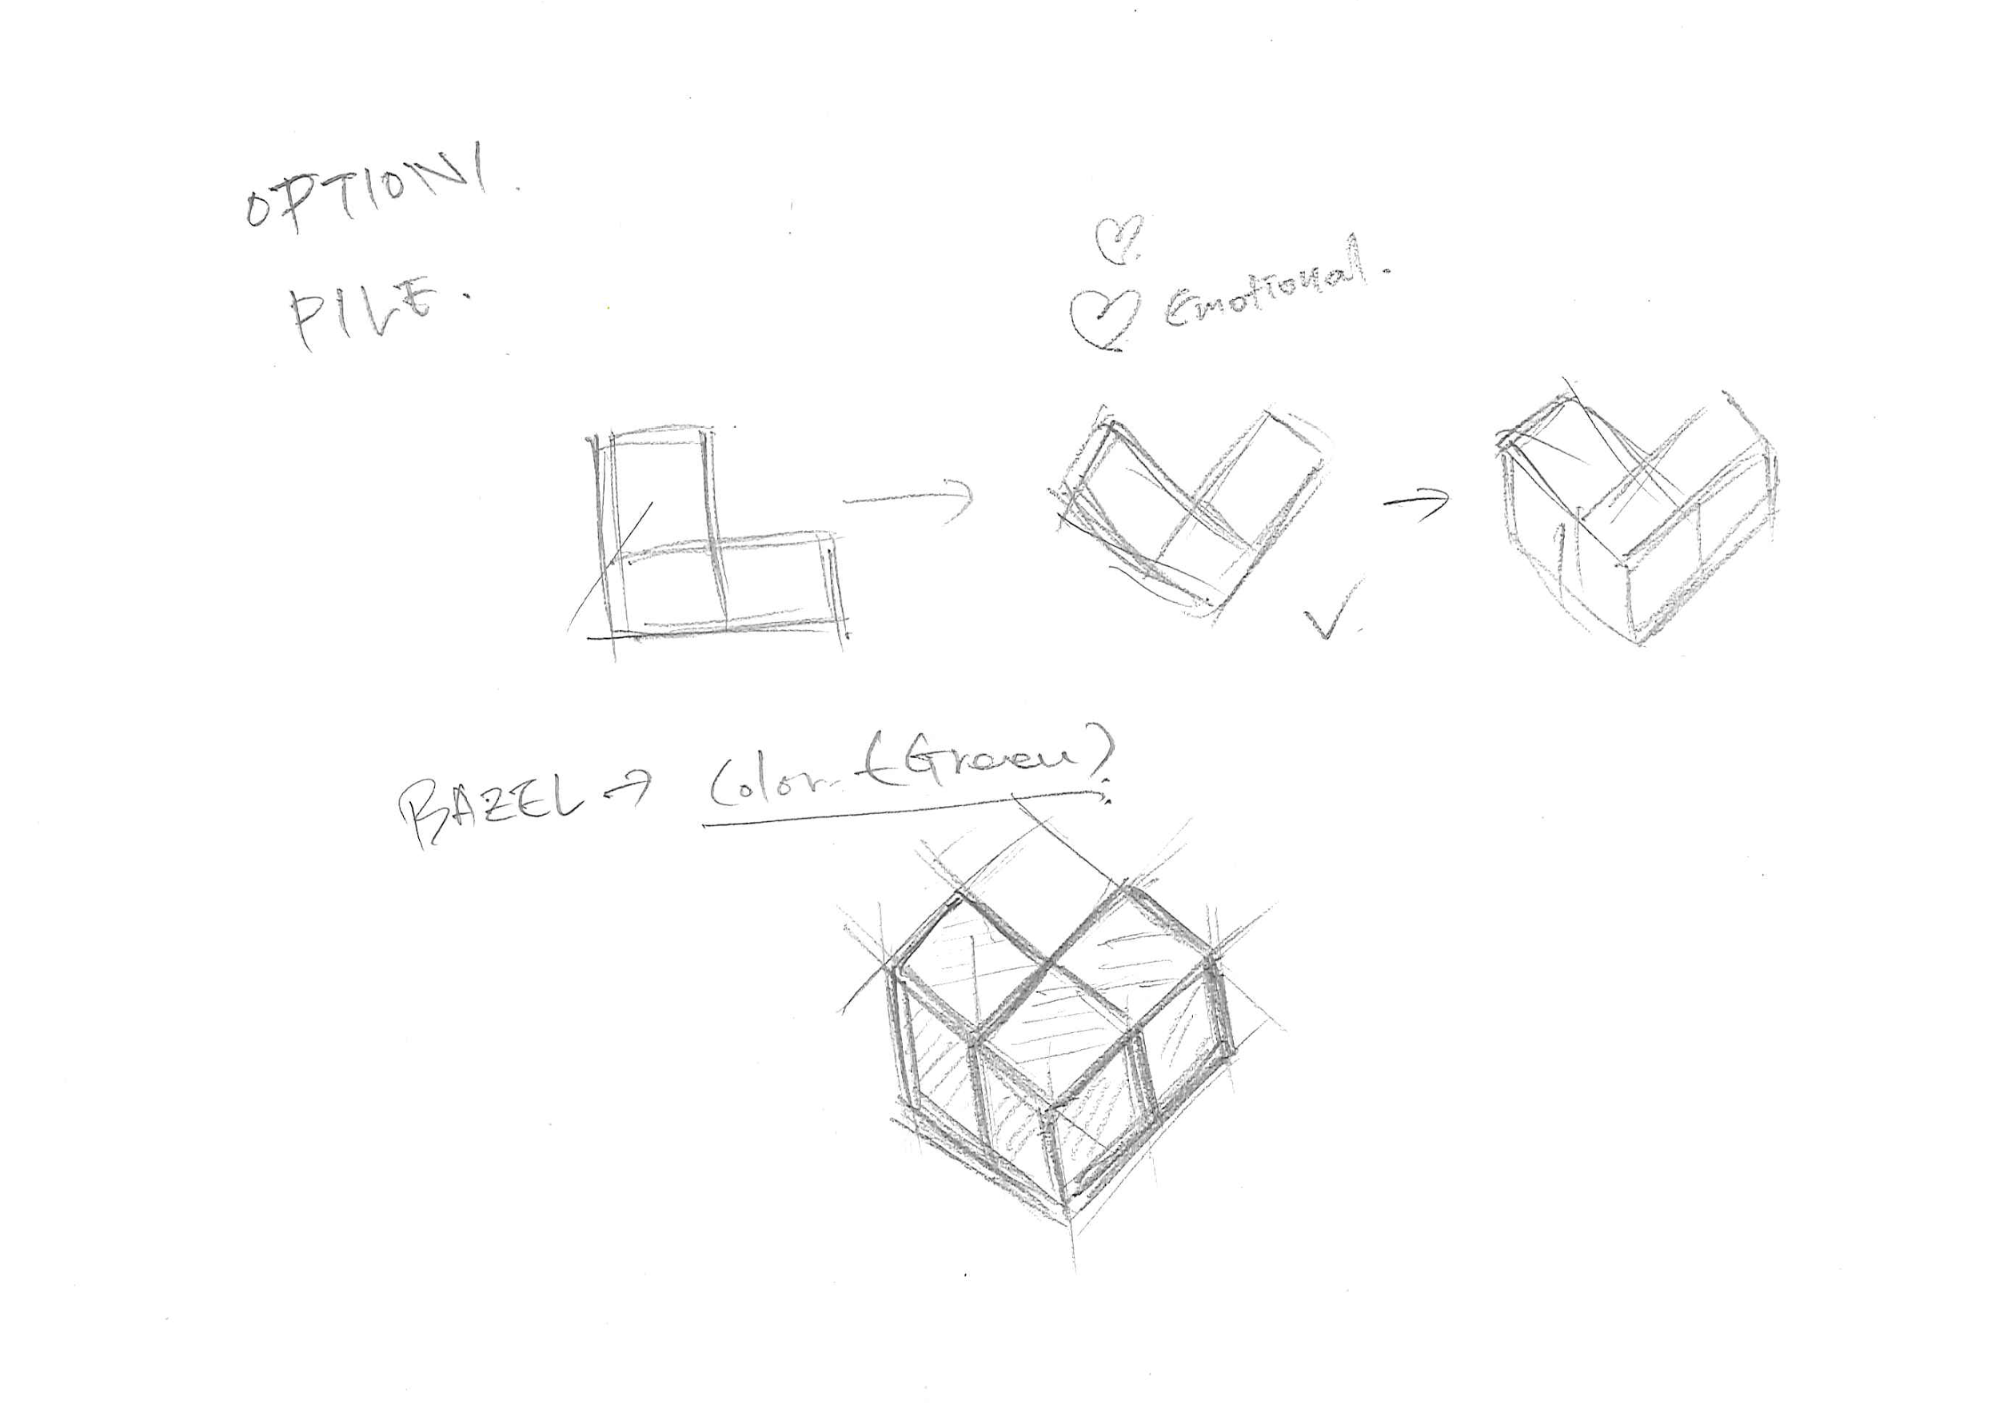 OPTION1.
PILE.
Emotional.
BAZEL → Color (Green)